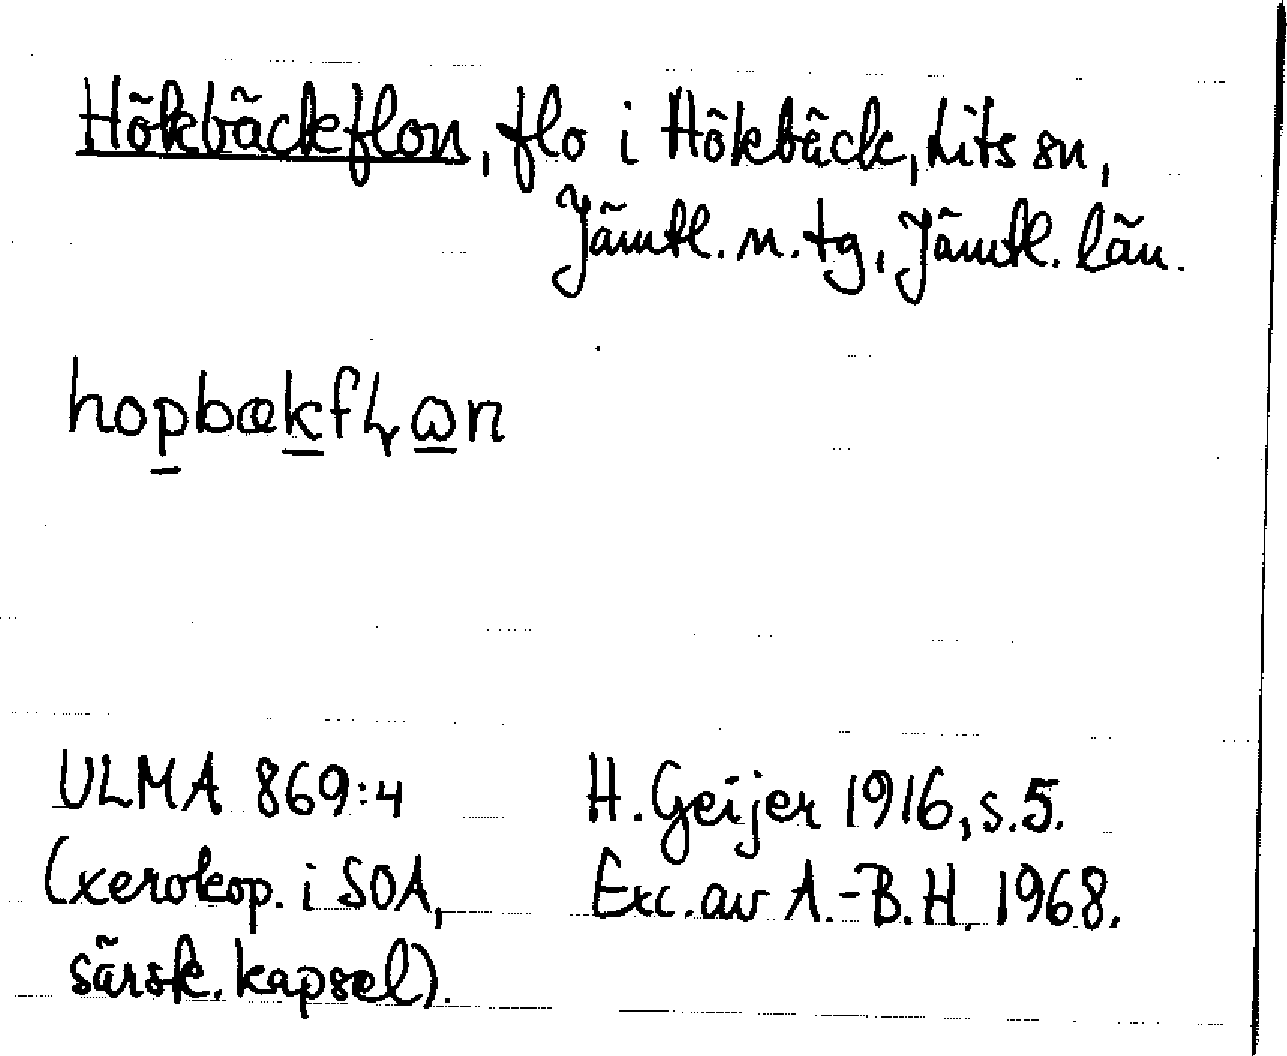 Hökbäckflon, flo i Hökbäck, Lits sn,
Jämtl. n. tg, Jämtl. län.
hopbækfɽωn
ULMA 869:4
(xerokop. i SOA,
särsk. kapsel).
H. Geijer 1916, s. 5.
Exc. av A.-B. H. 1968.